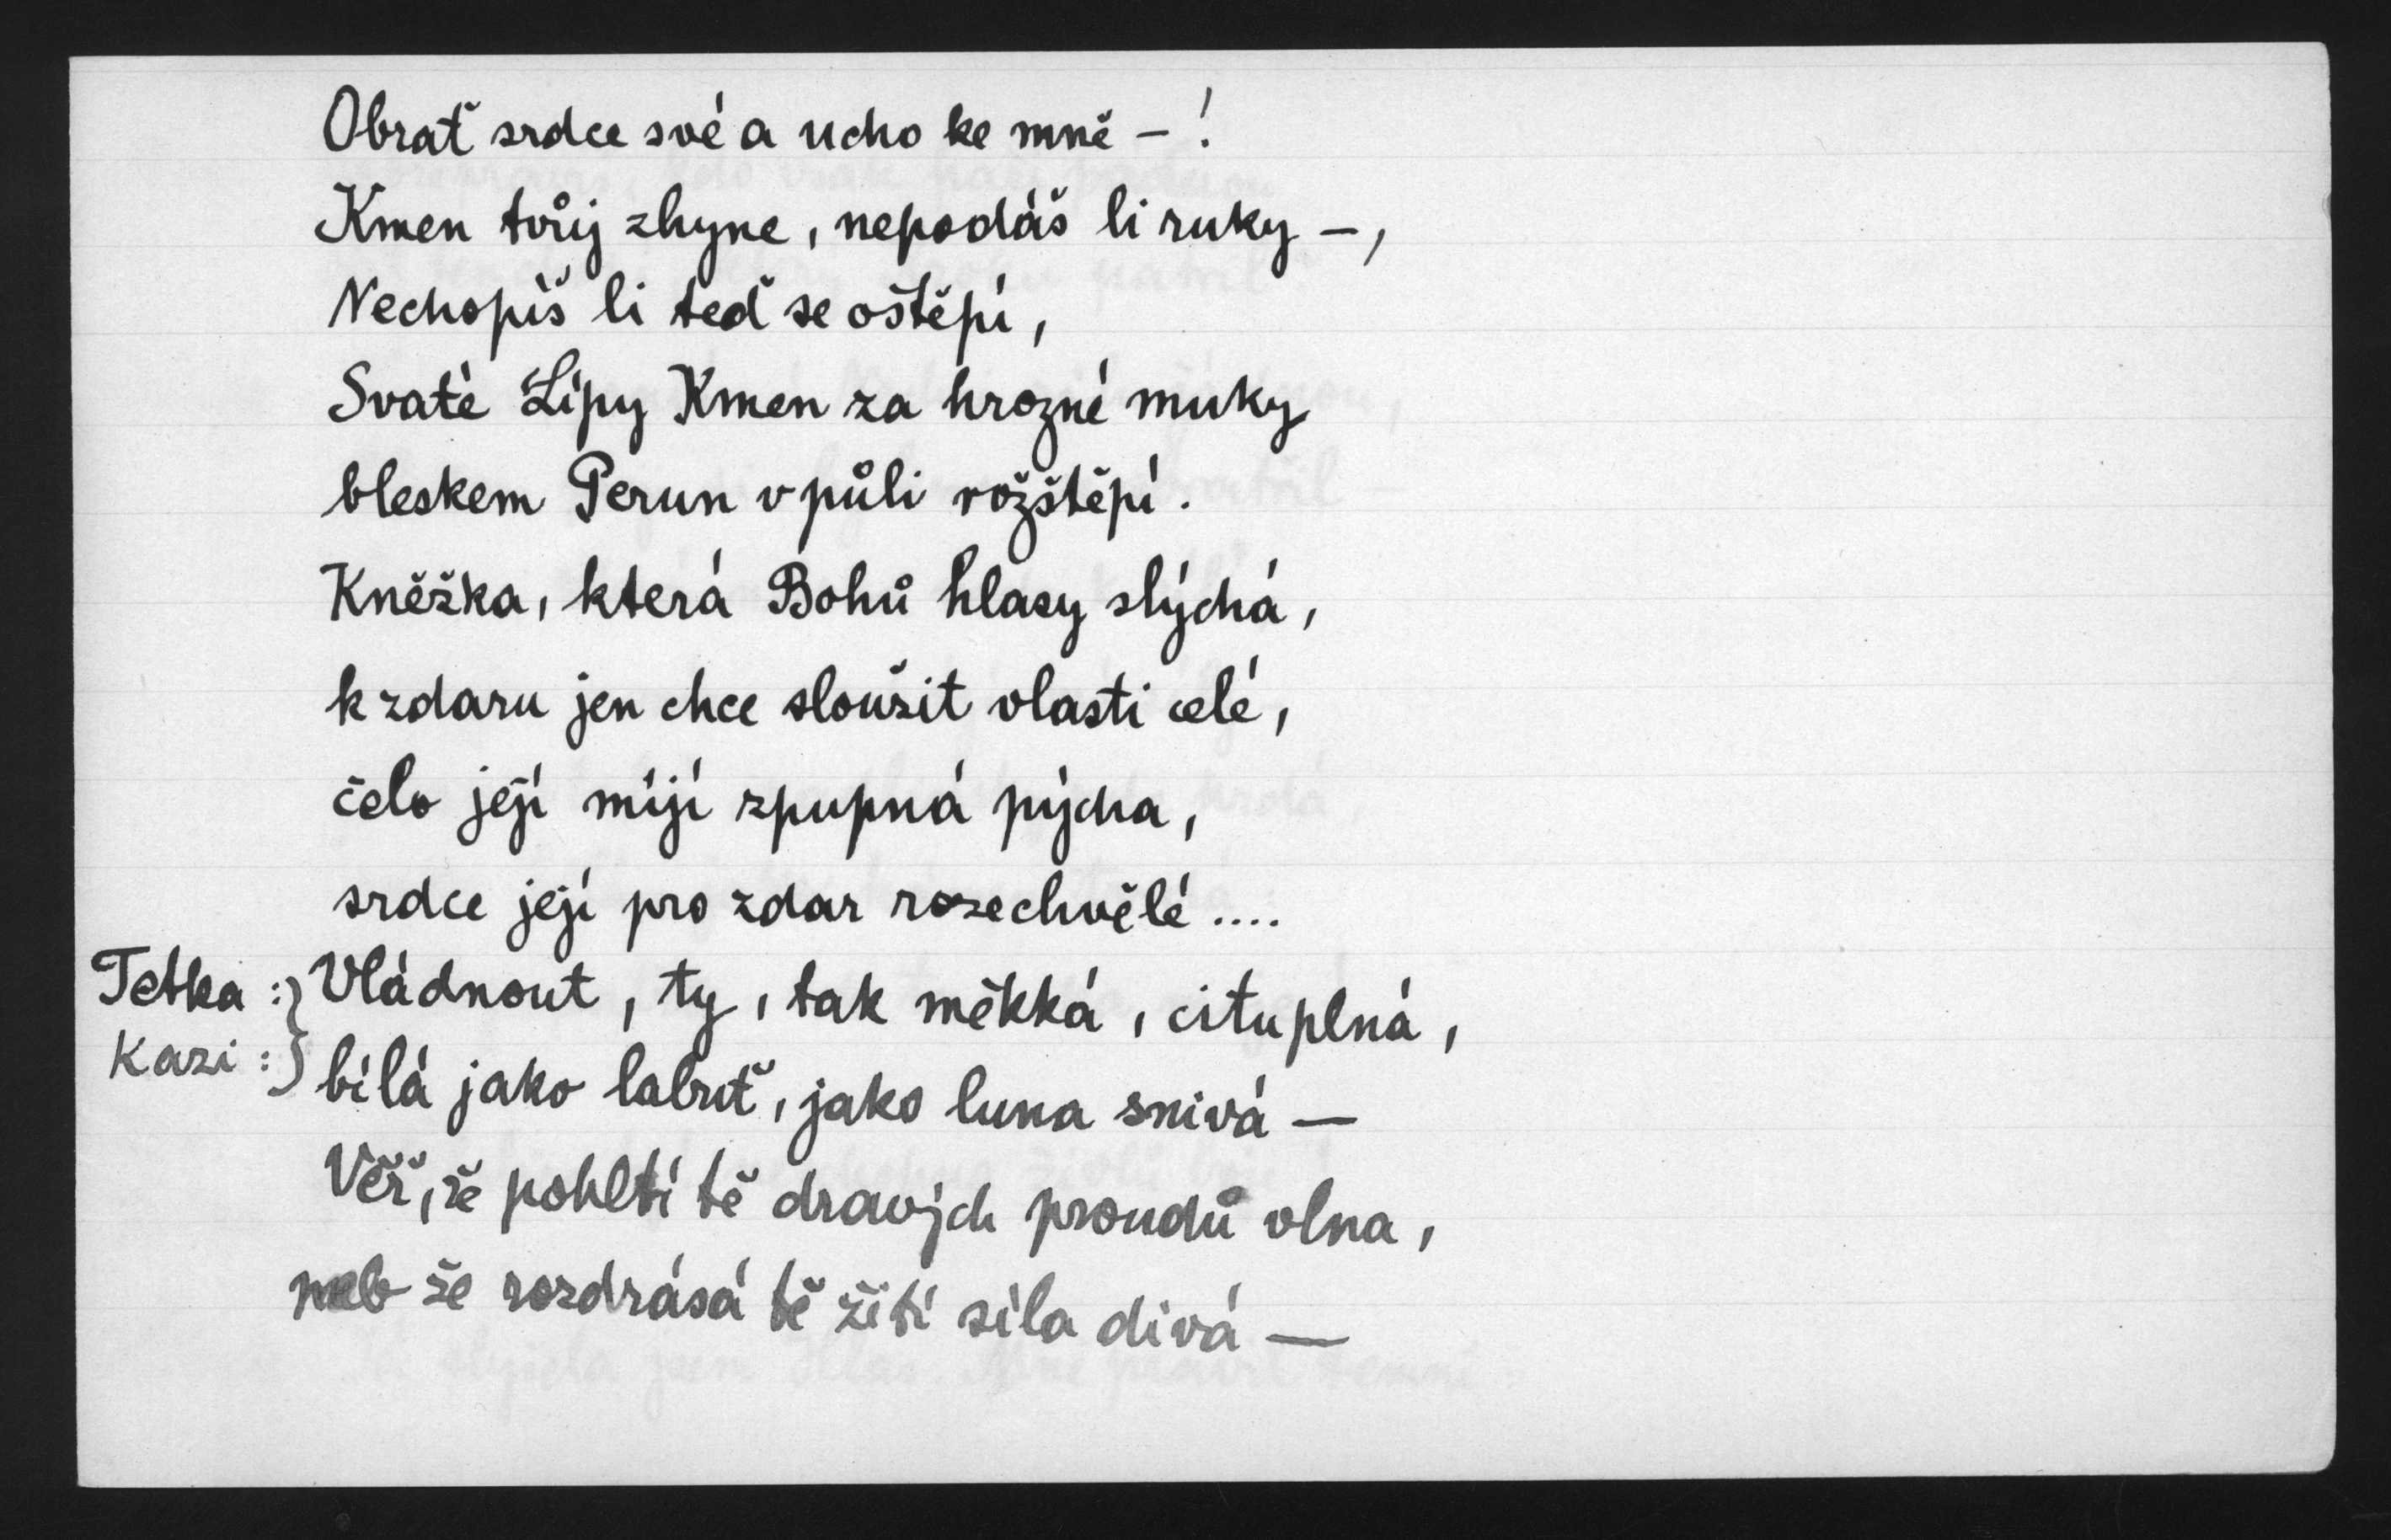 Obrať srdce své a ucho ke mně – !
Kmen tvůj zhyne, nepodáš li ruky –,
Nechopíš li teď se oštěpí,
Svaté Lípy Kmen za hrozné muky
bleskem Perun v půli rožštěpí.
Kněžka, která Bohů hlasy slýchá,
k zdaru jen chce sloužit vlasti celé,
čelo její míjí zpupná pýcha,
srdce její pro zdar rozechvělé ....
Tetka :} Vládnout, ty, tak měkká, citu plná,
Kazi :} bílá jako labuť, jako luna snivá —
Věř, že pohltí tě dravých proudů vlna,
neb že rozdrásá tě žití síla divá —